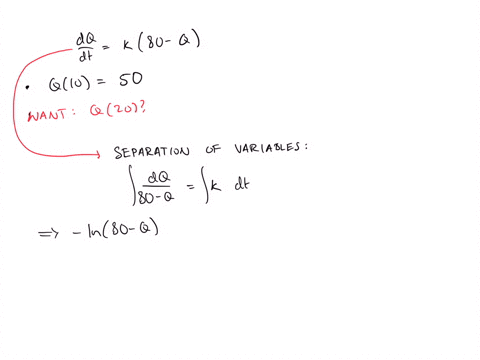 dQ/dt = k(80-Q)
• Q(10) = 50
WANT: Q(20)?
SEPARATION OF VARIABLES:
∫ dQ/(80-Q) = ∫ k dt
⟹ -ln(80-Q)